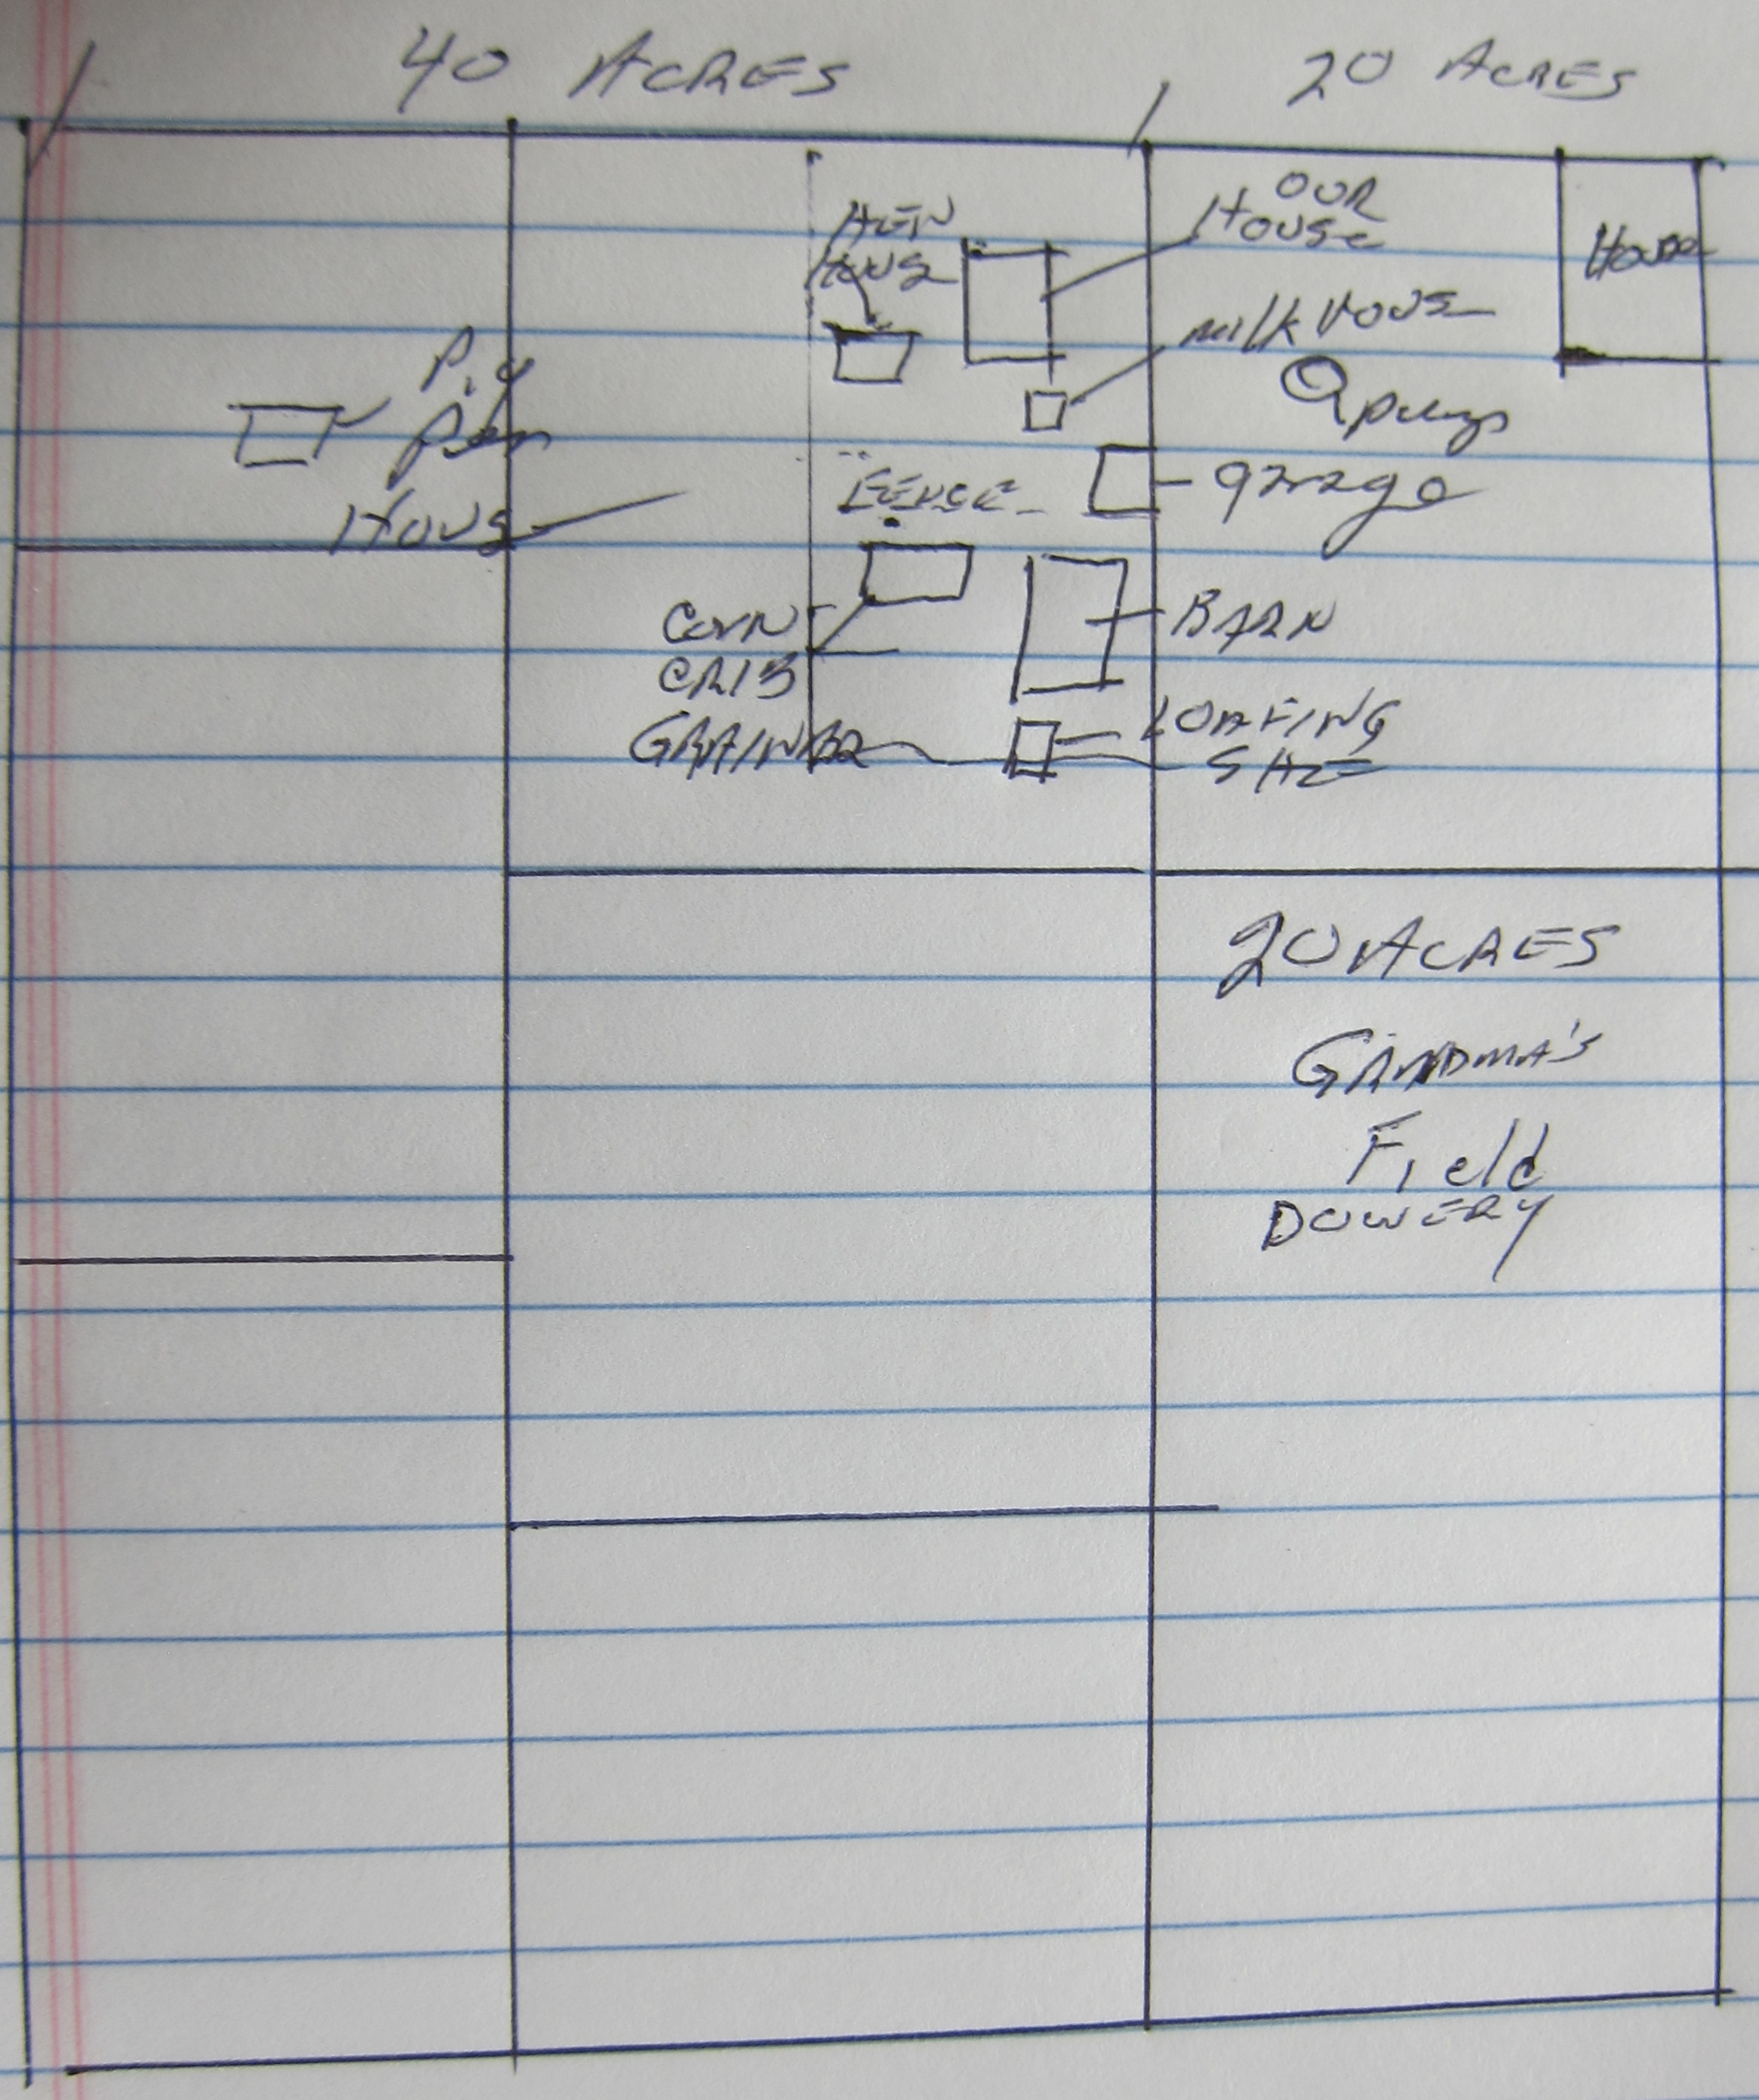 40 ACRES
20 ACRES
OUR
HOUSE
House
HEN
HOUS
milk HOUS
pump
Pig
pen
Hous
garage
FENCE
CORN
CRIB
BARN
GRAINAR
LOAFING
SHE
20 ACRES
GRANDMA'S
Field
DOWERY